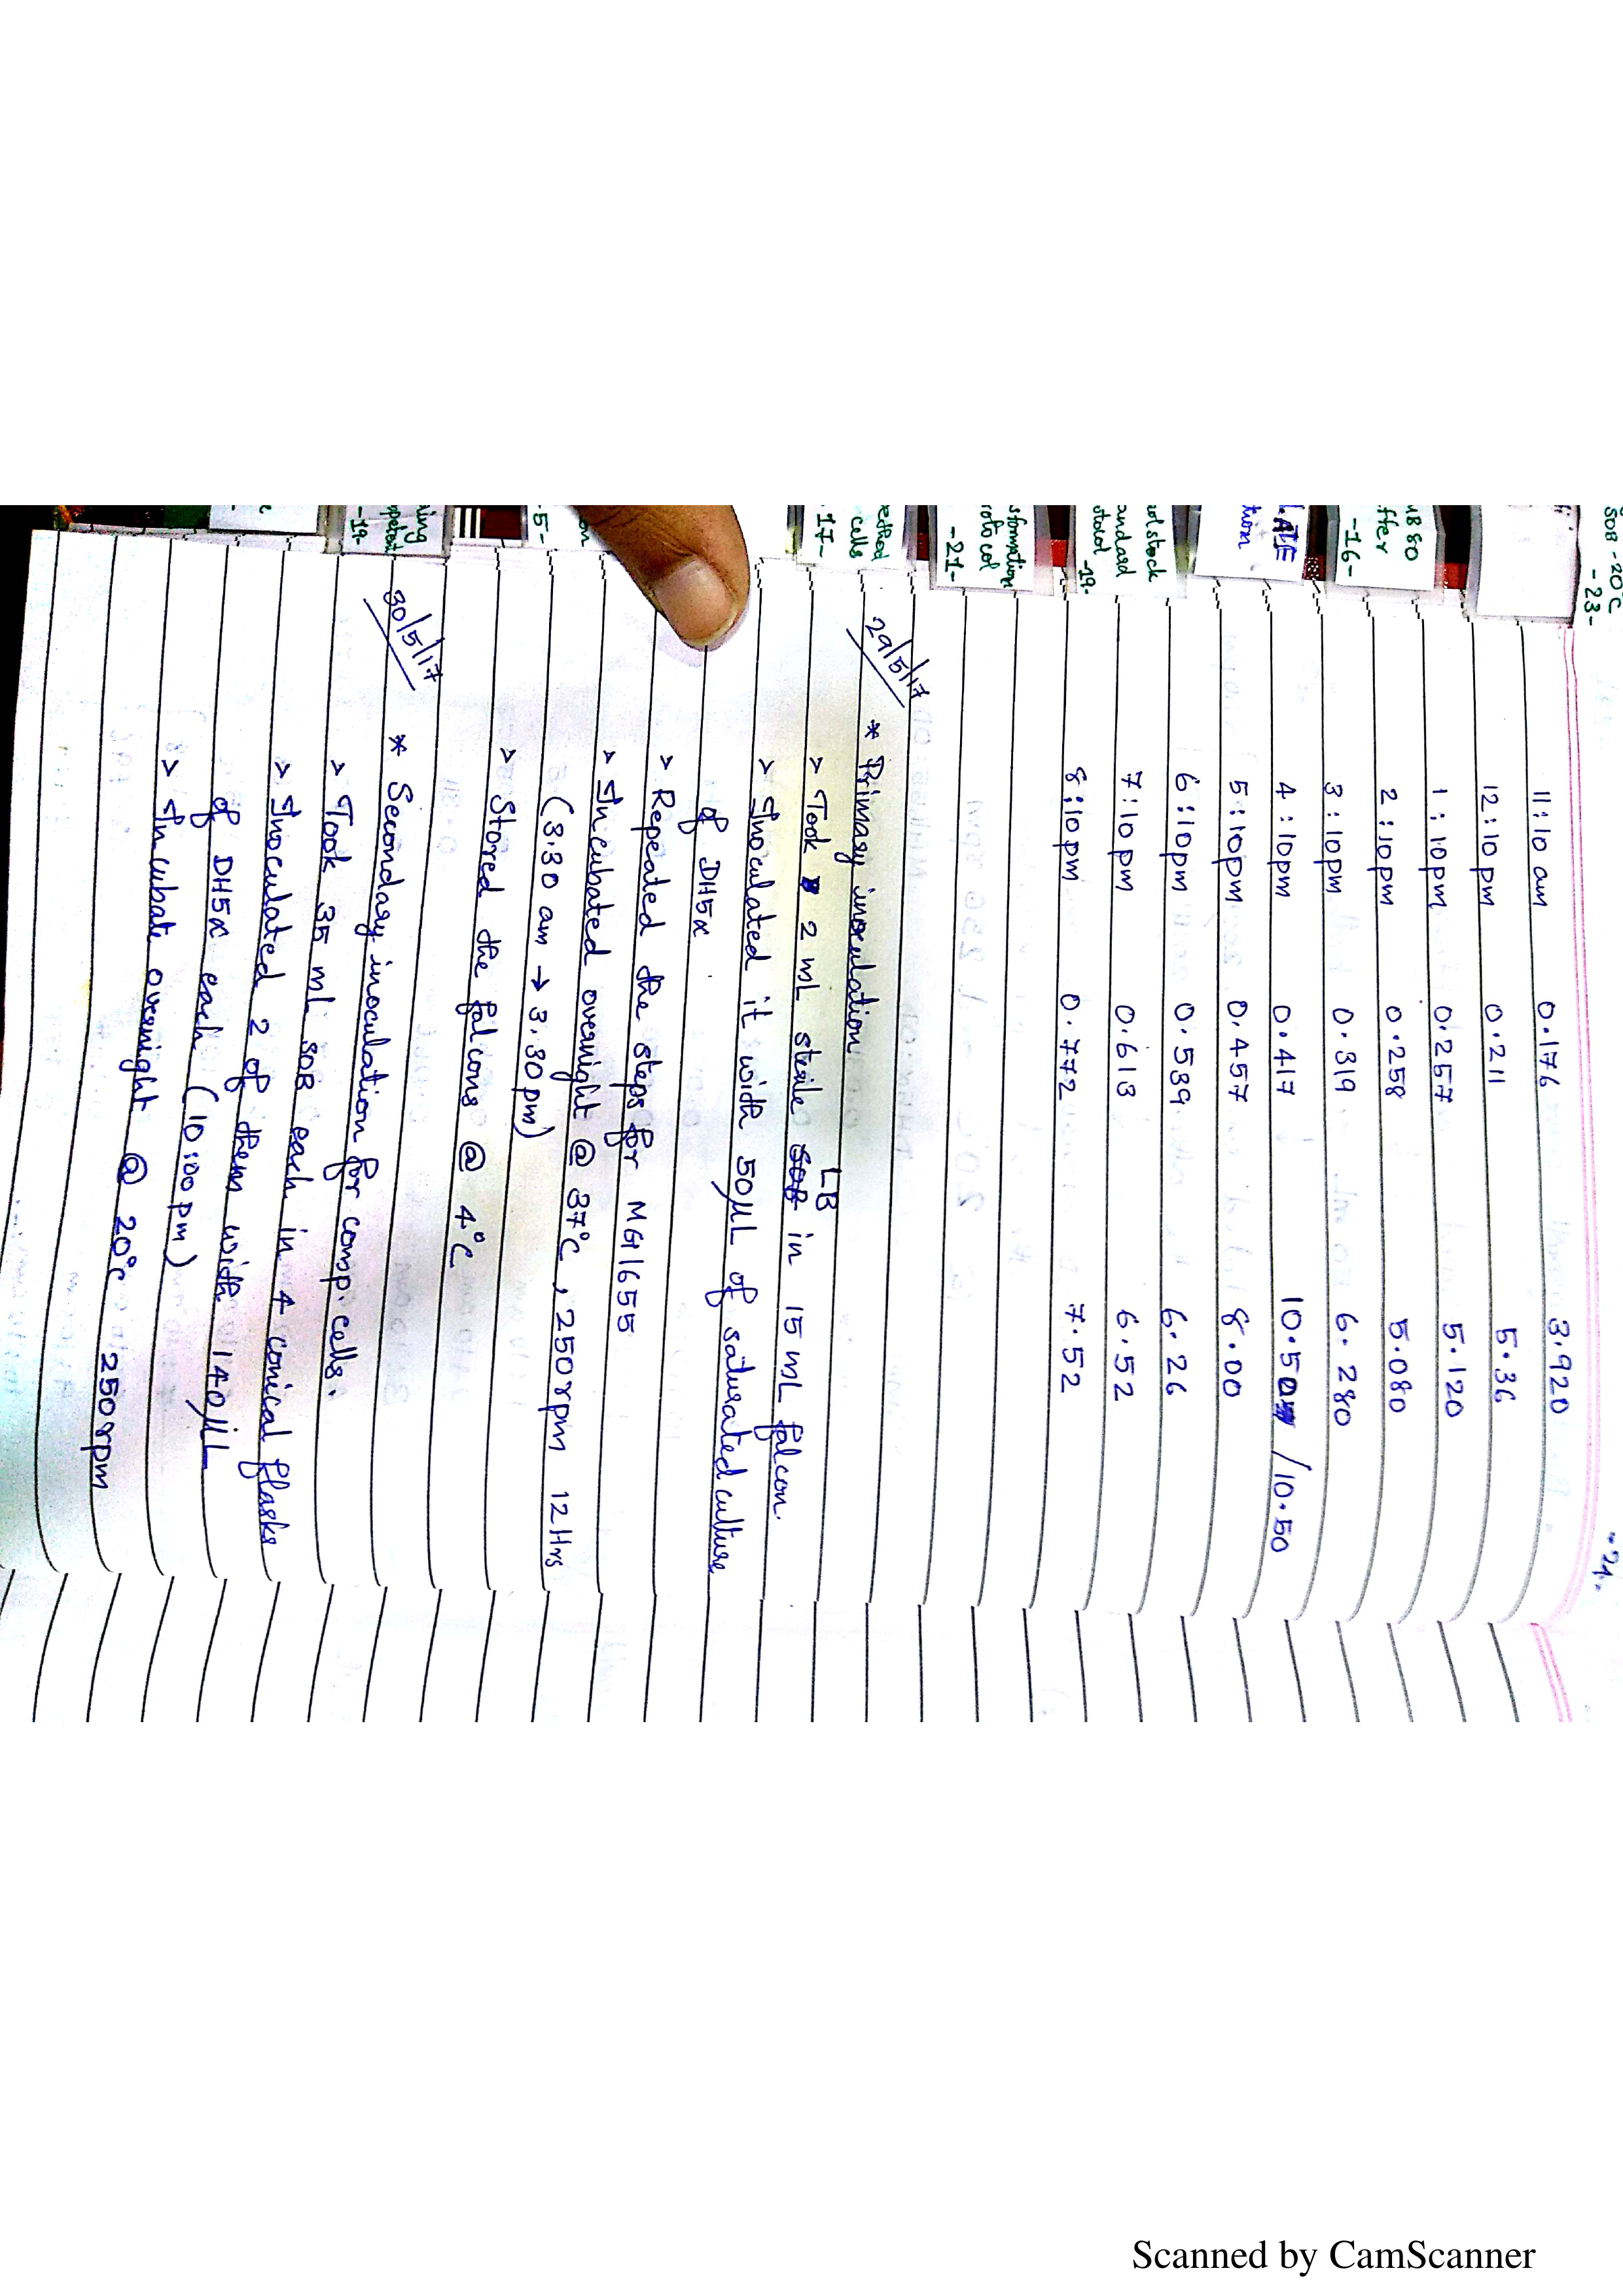 -24-
11:10 am 0.176 3.920
12:10 pm 0.211 5.36
1:10 pm 0.257 5.120
2:10 pm 0.258 5.080
3:10 pm 0.319 6.280
4:10 pm 0.417 10.50 /10.50
5:10 pm 0.457 8.00
6:10 pm 0.539 6.26
7:10 pm 0.613 6.52
8:10 pm 0.772 7.52
29/5/17
* Primary inoculation
> Took 2 mL sterile SOB LB in 15 mL falcon.
> Inoculated it with 50μL of saturated culture
of DH5α
> Repeated the steps for MG1655
> Incubated overnight @ 37°C, 250rpm 12Hrs
(3.30 am → 3.30pm)
> Stored the falcons @ 4°C
30/5/17
* Secondary inoculation for comp. cells.
> Took 35 mL SOB each in 4 conical flasks
> Inoculated 2 of them with 140μL
of DH5α each (10:00 pm)
> Incubate overnight @ 20°C 250rpm
SOB -20°C
-23-
ffer
-16-
tion
ol stock
andard
-19-
sformation
rotocol
-21-
cells
-17-
-5-
-19-
Scanned by CamScanner